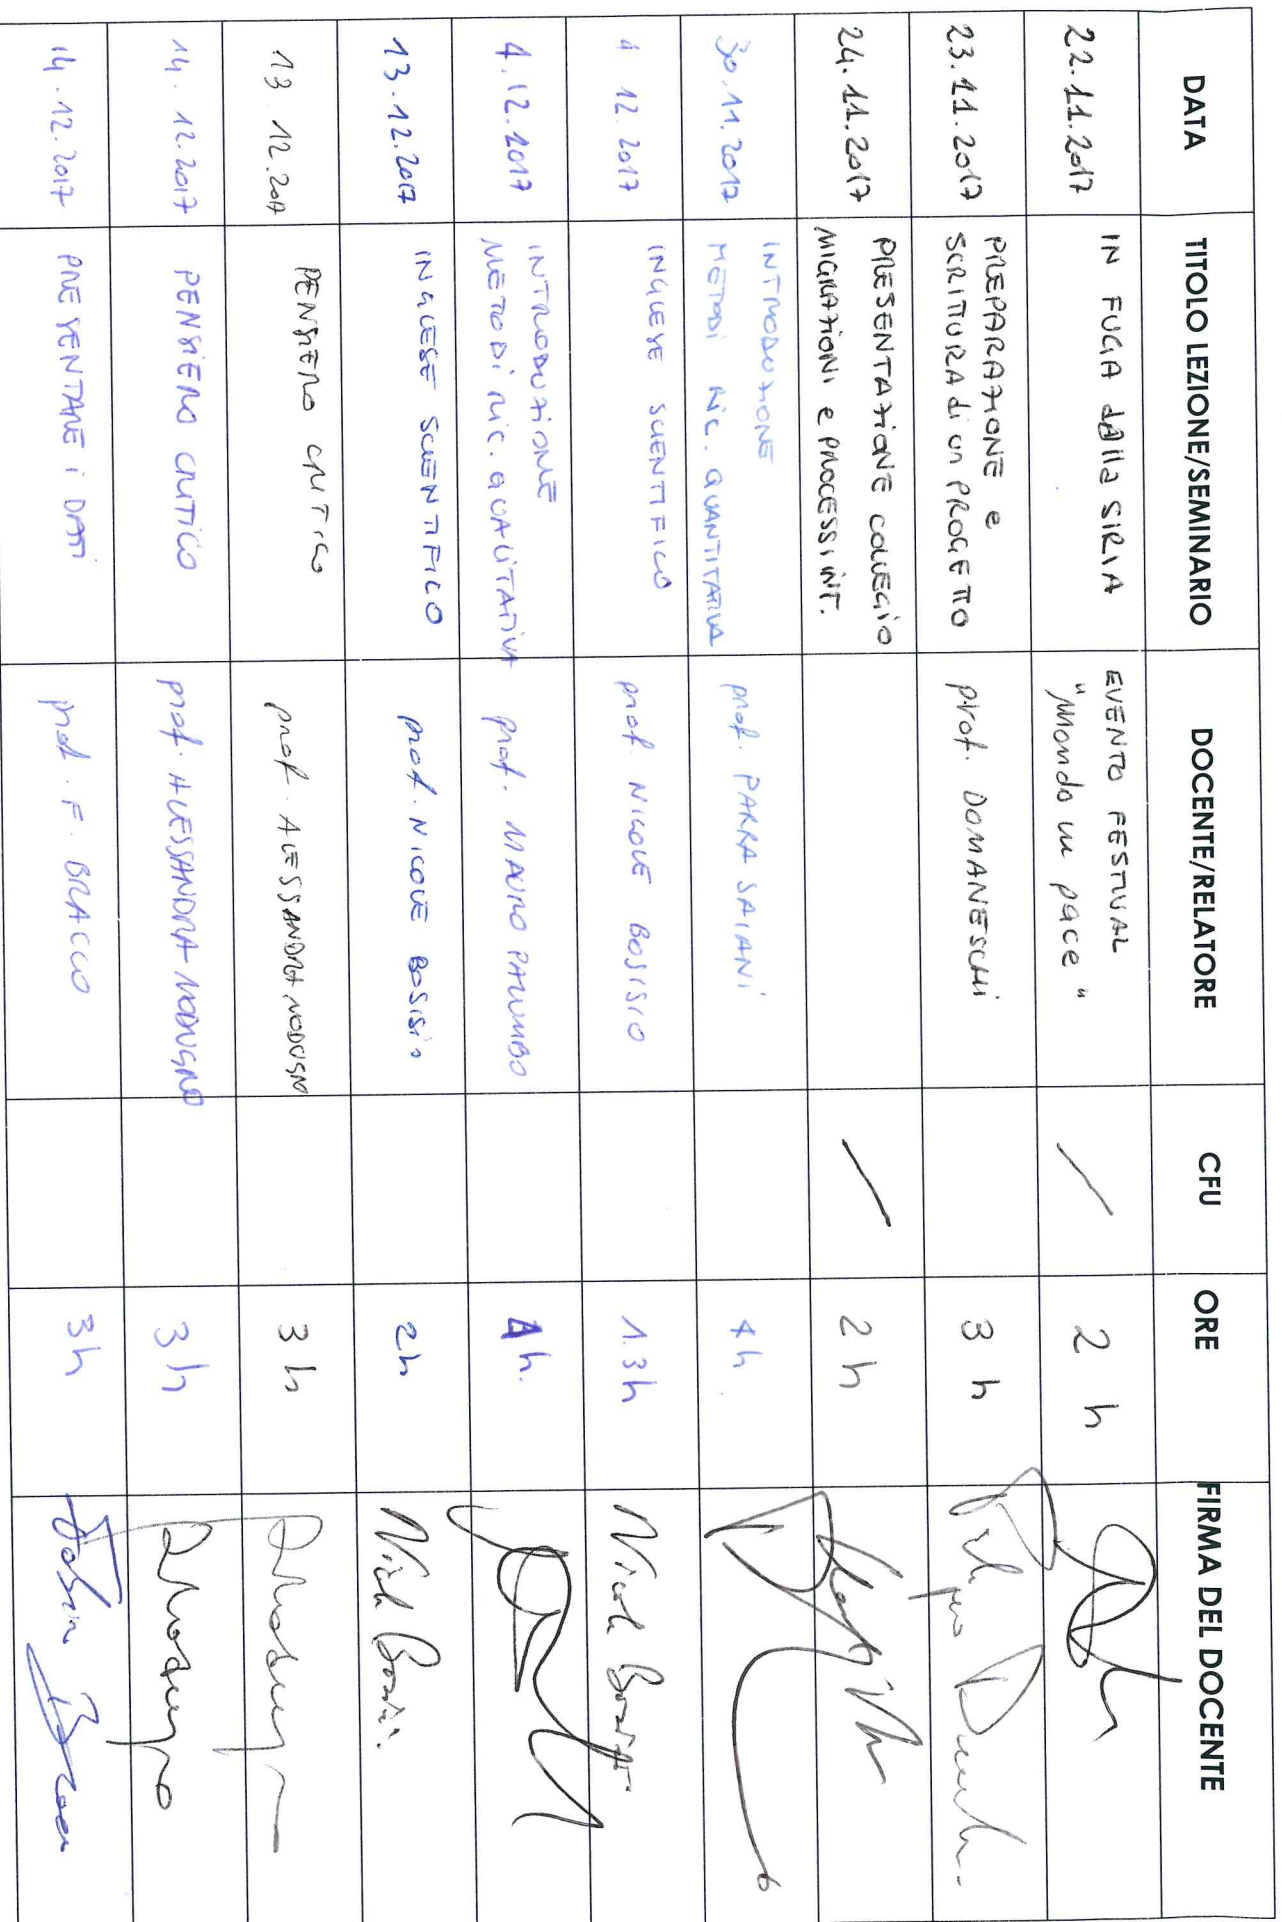 DATA TITOLO LEZIONE/SEMINARIO DOCENTE/RELATORE CFU ORE FIRMA DEL DOCENTE
22.11.2017 IN FUGA dalla SIRIA EVENTO FESTIVAL
"Mondo in pace" / 2 h
23.11.2017 PREPARAZIONE e
SCRITTURA di un PROGETTO prof. DOMANESCHI 3 h
24.11.2017 PRESENTAZIONE COLLEGIO
MIGRAZIONI e PROCESSI INT. / 2 h
30.11.2017 INTRODUZIONE
METODI RIC. QUANTITATIVA prof. PARRA SAIANI 4 h
4 12. 2017 INGLESE SCIENTIFICO prof. NICOLE BOSISIO 1.3 h Nicole Bosisio
4.12.2017 INTRODUZIONE
METODI RIC. QUALITATIVA prof. MAURO PALUMBO 4 h.
13.12.2017 INGLESE SCIENTIFICO prof. NICOLE BOSISIO 2 h
13.12.2017 PENSIERO CRITICO prof. ALESSANDRA MODUGNO 3 h
14.12.2017 PENSIERO CRITICO prof. ALESSANDRA MODUGNO 3 h
14.12.2017 PRESENTARE i DATI prof. F. BRACCO 3 h